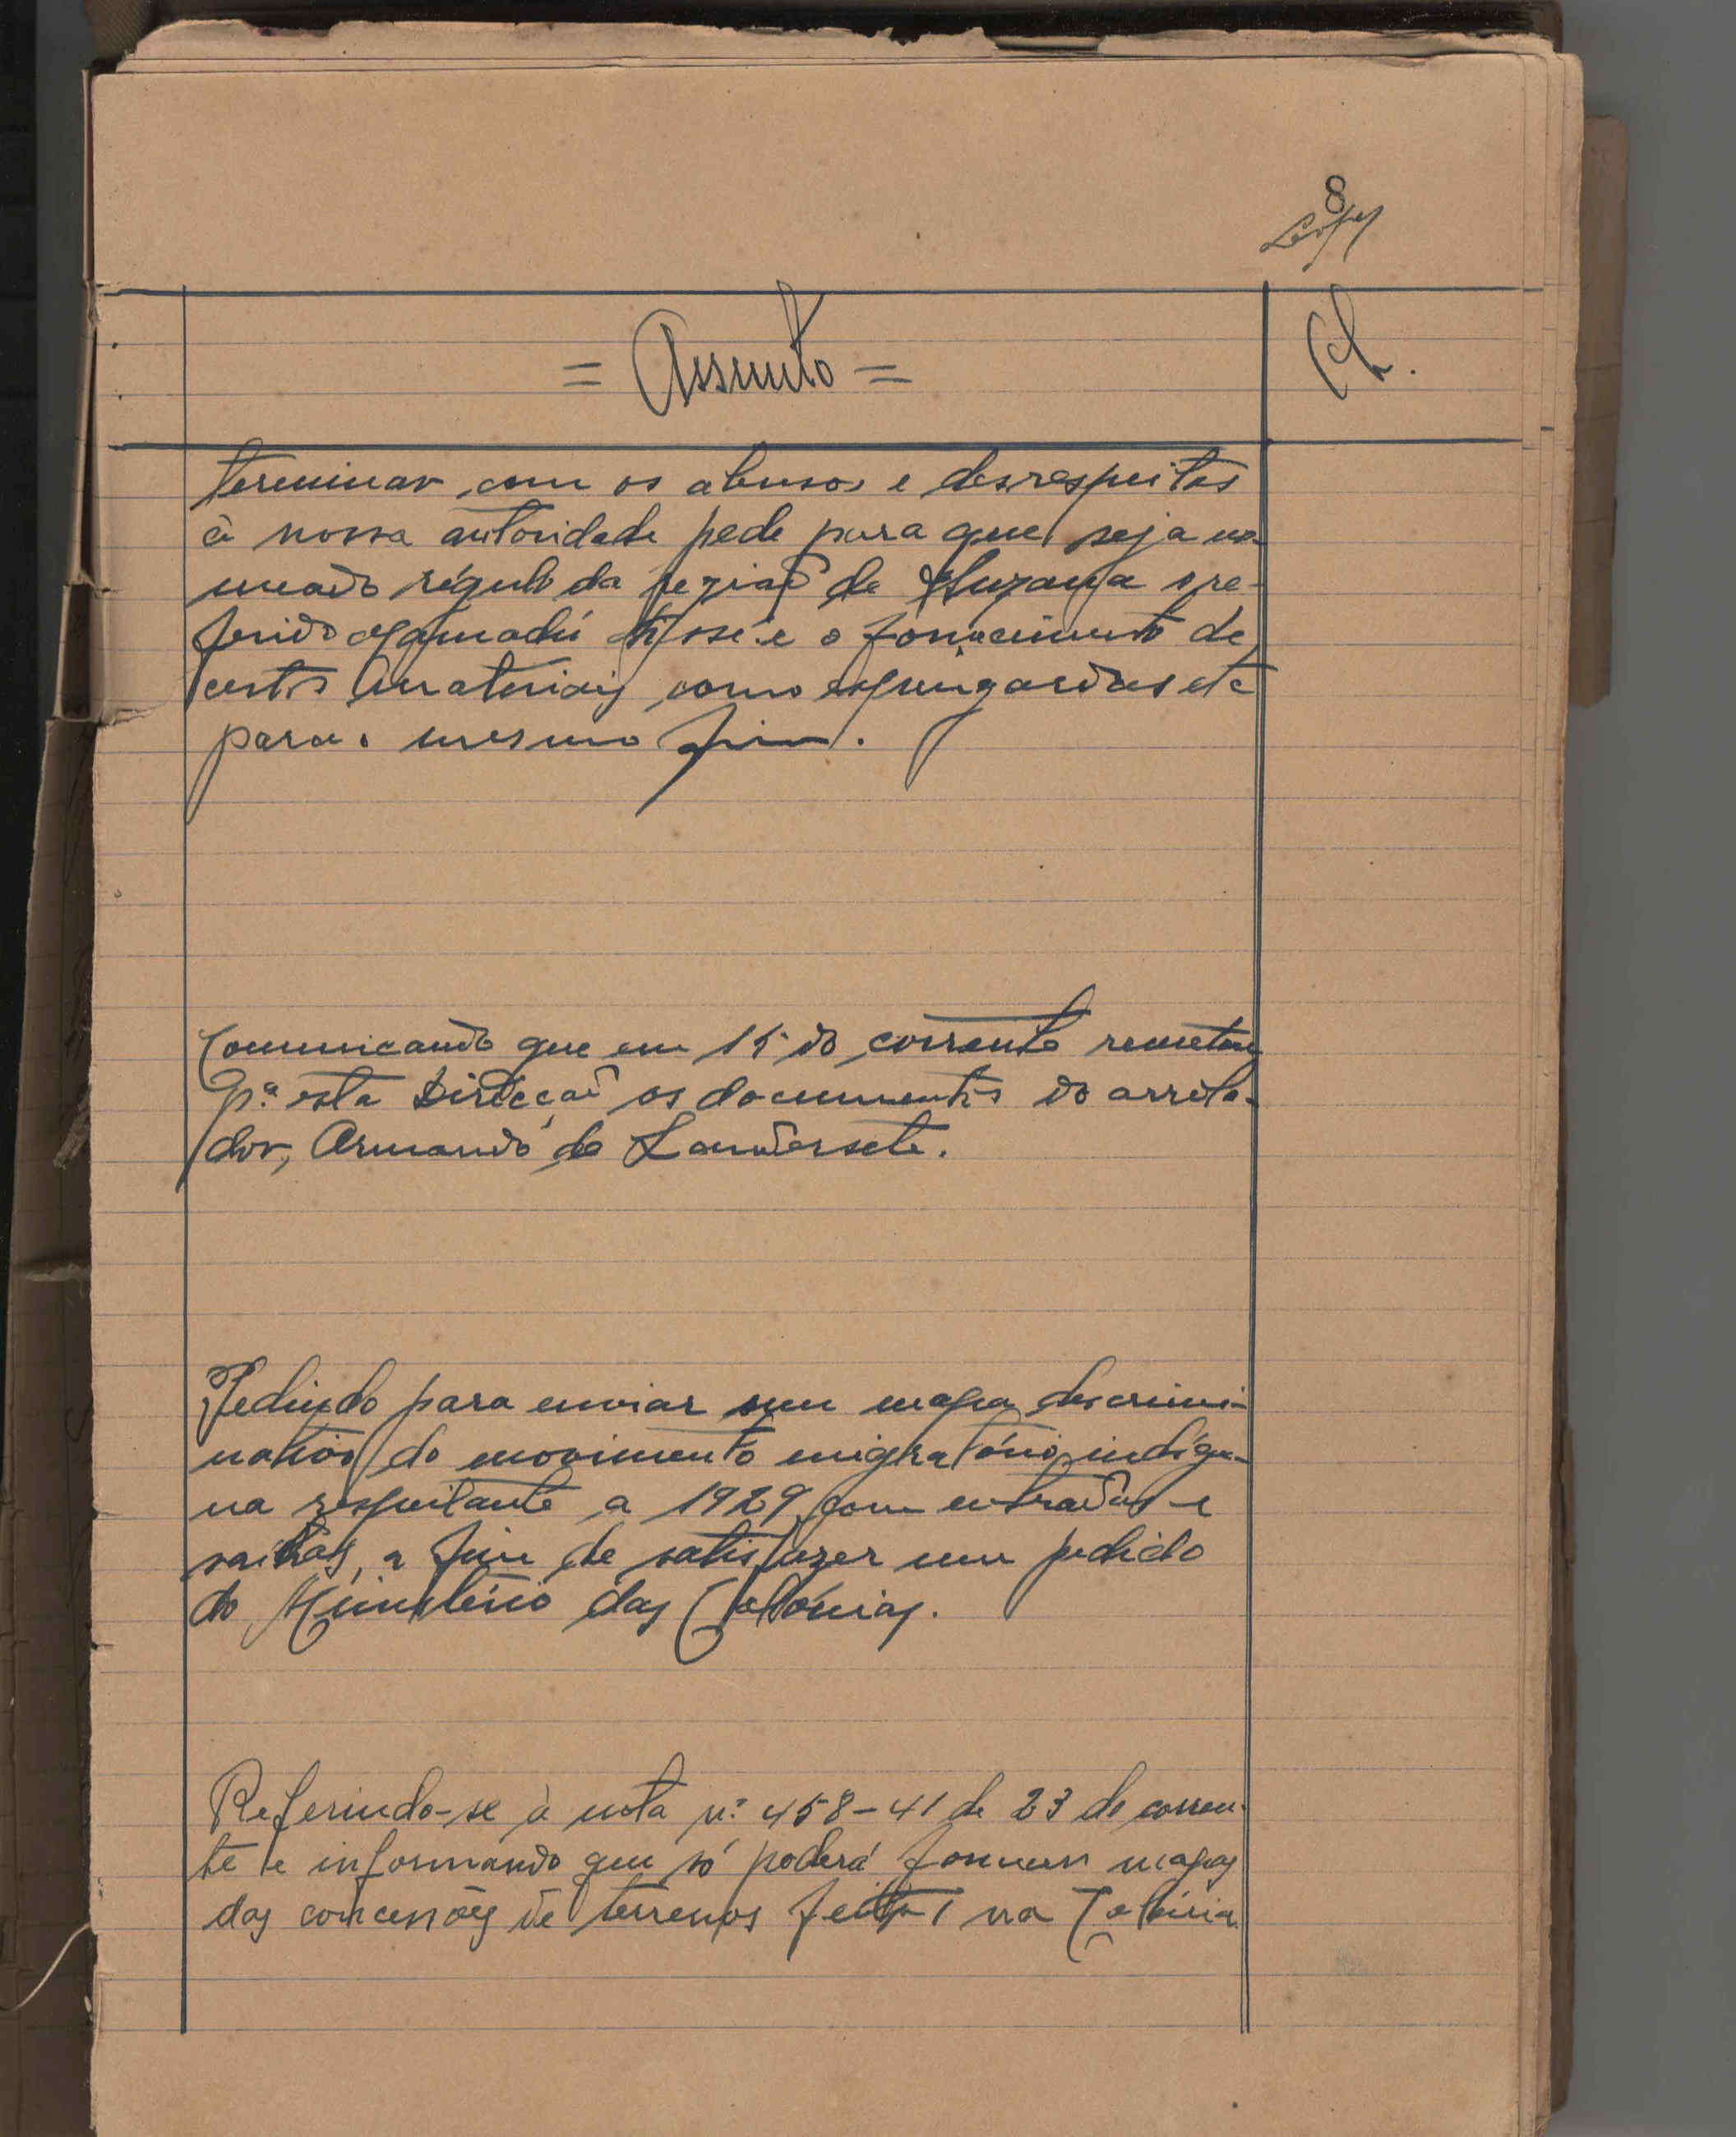 8
Lopes
= Assunto = Cl.
terminar com os abusos e desrespeitos
à nossa autoridade pede para que seja no-
meado régulo da região de Suzana o re-
ferido Mamadú Sissé e o fornecimento de
certos materiais, como espingardas etc
para o mesmo fim.
Comunicando que em 15 do corrente remeteu
p.ª esta Direcção os documentos do
dor, Armando de Landerset.
Pedindo para enviar um mapa descrimi-
nativo do movimento emigratório indíge-
na respeitante a 1929, com entradas e
saídas, a fim de satisfazer um pedido
do Ministério das Colónias.
Referindo-se à nota n.º 458-41 de 23 do corren-
te e informando que só poderá fornecer mapas
das concessões de terrenos feitas na Colónia